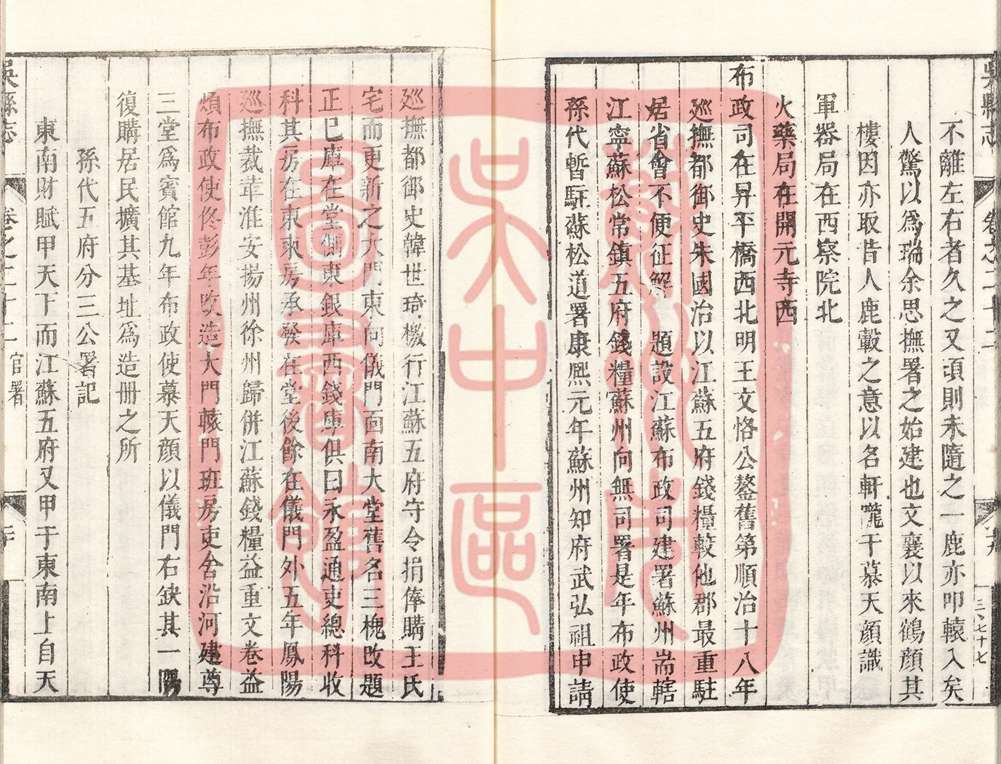 吳縣志
卷之二十二
不離左右者久之又頃則未隨之一鹿亦叩轅入矣
人驚以爲瑞余思撫署之始建也文襄以來鶴顏其
樓因亦取昔人鹿轂之意以名軒隴干慕天顏識
軍器局在西察院北
火藥局在開元寺西
布政司在昇平橋西北明王文恪公鏊舊第順治十八年
廵撫都御史朱國治以江蘇五府錢糧較他郡最重駐
居省會不便征解題設江蘇布政司建署蘇州耑轄
江寧蘇松常鎮五府錢糧蘇州向無司署是年布政使
孫代暫駐蘇松道署康熙元年蘇州知府武弘祖申請
廵撫都御史韓世琦檄行江蘇五府守令捐俸購王氏
宅而更新之大門東向儀門面南大堂舊名三槐改題
正已庫在堂側東銀庫西錢庫俱曰永盈通吏總科收
科其房在東東房承發在堂後餘在儀門外五年鳳陽
廵撫裁革淮安揚州徐州歸併江蘇錢糧益重文卷益
煩布政使佟彭年改造大門轅門班房吏舍沿河建尊
三堂爲賓館九年布政使慕天顏以儀門右缺其一隅
復購居民擴其基址爲造册之所
孫代五府分三公署記
東南財賦甲天下而江蘇五府又甲于東南上自天
吳縣志
卷之二十二
官署
蘇州市
吳中區
圖書館